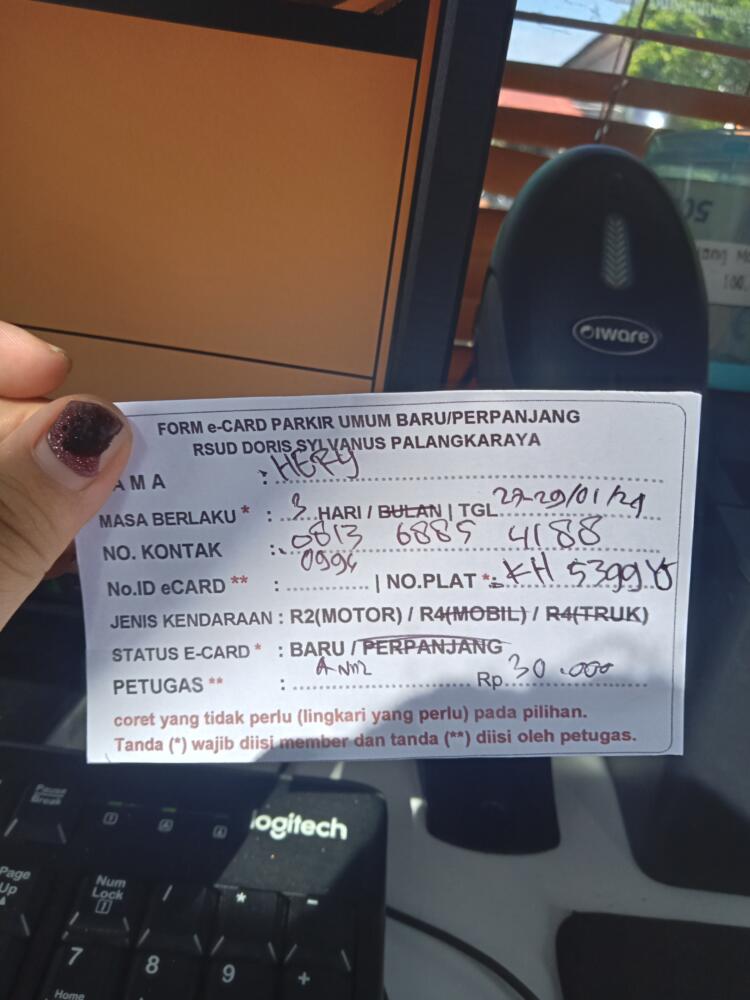 iware
FORM e-CARD PARKIR UMUM BARU/PERPANJANG
RSUD DORIS SYLVANUS PALANGKARAYA
AMA : HERY
MASA BERLAKU * : 3 HARI / BULAN | TGL 27-29/01/24
NO. KONTAK : 0813 6885 4188
No.ID eCARD ** : 0994 | NO.PLAT *: KH 5399 Y
JENIS KENDARAAN : R2(MOTOR) / R4(MOBIL) / R4(TRUK)
STATUS E-CARD * : BARU / PERPANJANG
PETUGAS ** : Rp. 30.000
coret yang tidak perlu (lingkari yang perlu) pada pilihan.
Tanda (*) wajib diisi member dan tanda (**) diisi oleh petugas.
logitech
Pause
Break
Page
Up
Num
Lock
/
*
-
7
8
9
+
Home